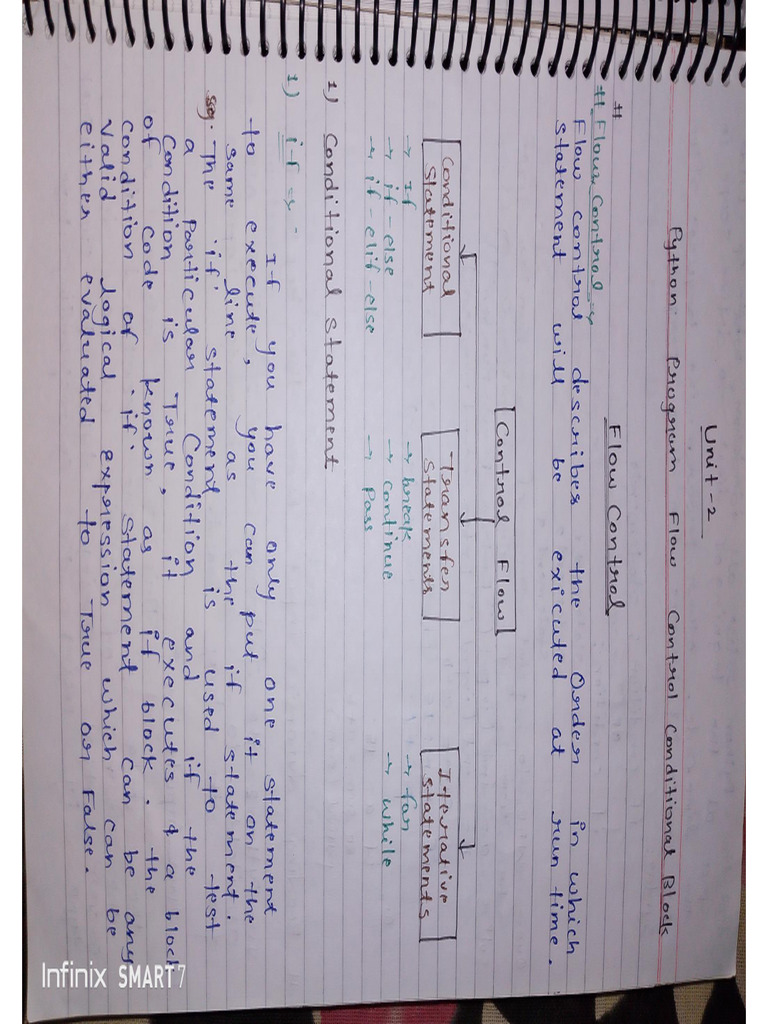 Unit-2
Python Program Flow Control Conditional Block
Flow Control
#
# Flow Control :-
Flow control describes the Order in which
statement will be exicuted at run time.
Control Flow
Conditional Statement
Transfer Statements
Iterative Statements
→ If
→ if-else
→ if-elif-else
→ break
→ continue
→ Pass
→ for
→ while
1) Conditional Statement
1) if :-
If you have only one statement
to execute, you can put it on the
same line as the if statement.
The 'if' statement is used to test
a Particular Condition and if the
Condition is True, it executes & a block
of code known as if block. the
condition of 'if' statement can be any
valid logical expression which can be
either evaluated to True or False.
Infinix SMART 7